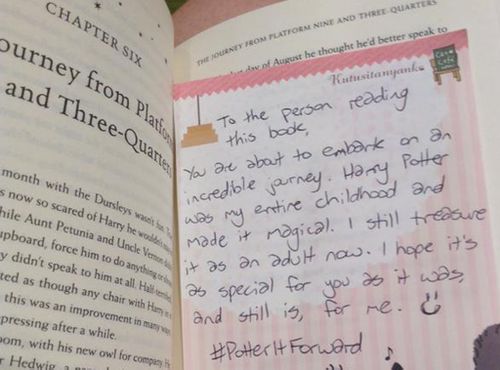 CHAPTER SIX
ourney from Platfor
and Three-Quarter
month with the Dursleys wasn't fun.
s now so scared of Harry he wouldn't
hile Aunt Petunia and Uncle Vernon
upboard, force him to do anything or
y didn't speak to him at all. Half
ted as though any chair with Harry in
this was an improvement in many
pressing after a while.
oom, with his new owl for company. H
r Hedwig, a
THE JOURNEY FROM PLATFORM NINE AND THREE-QUARTERS
day of August he thought he'd better speak to
Kutusitanyanko
To the person reading
this book,
You are about to embark on an
incredible journey. Harry Potter
was my entire childhood and
made it magical. I still treasure
it as an adult now. I hope it's
as special for you as it was,
and still is, for me.
#PotterItForward